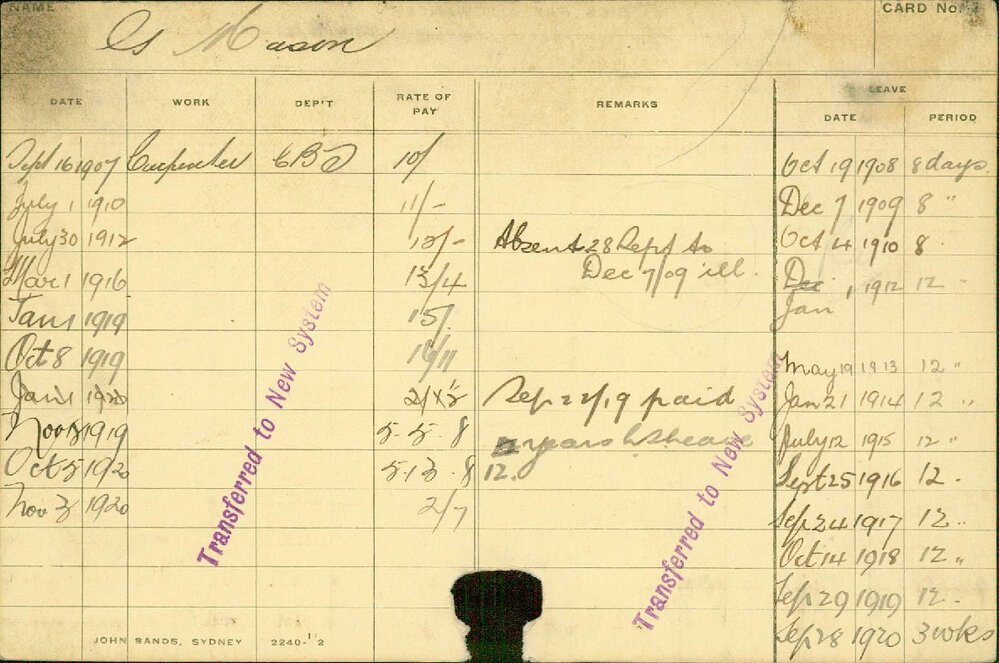 NAME
CARD No.
Mason
DATE WORK DEP'T RATE OF PAY REMARKS LEAVE
DATE PERIOD
Sept 16 1907 Carpenter 10/ Oct 19 1908 8 days.
July 1 1910 11/- Dec 7 1909 8 "
July 30 1912 12/- Absent 28 Sept to Oct 4 1910 8 "
Mar 1 1916 13/4 Dec 7/09 ill. Dec 1 1912 12 "
Jan 1 1919 15/. Jan
Oct 8 1919 16/11 May 19 1913 12 "
Jan 1 1920 Sep 22/19 paid Jan 21 1914 12 "
Nov 1919 5-5-8 years leave July 12 1915 12 "
Oct 5 1920 5-13-8 12. Sept 25 1916 12 "
Nov 3 1920 2/7
Sep 24 1917 12 "
Oct 14 1918 12 "
Sep 29 1919 12 "
Sep 28 1920 3 wks
Transferred to New System
Transferred to New System
JOHN SANDS, SYDNEY 2240-12